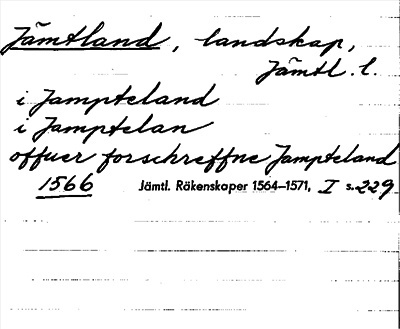 Jämtland, landskap,
Jämtl. l.
i Jampteland
i Jamptelan
offuer forschreffne Jampteland
1566 Jämtl. Räkenskaper 1564—1571, I s. 229